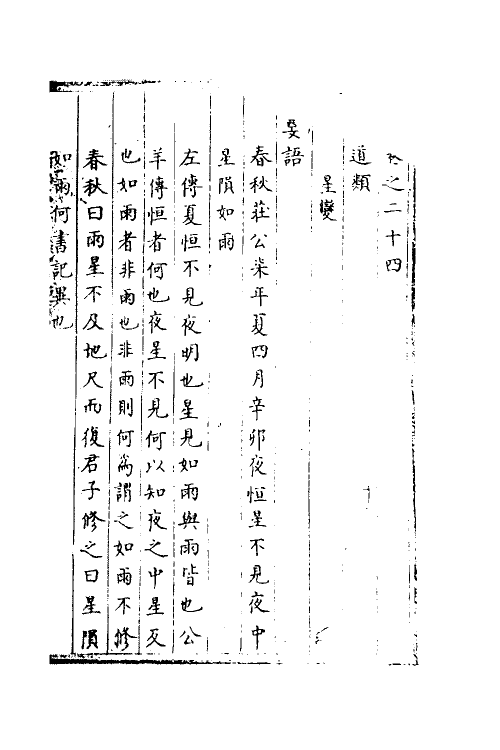 卷之二十四
道類
星變
要語
春秋莊公柒年夏四月辛卯夜恒星不見夜中
星隕如雨
左傳夏恒不見夜明也星見如雨與雨皆也公
羊傳恒者何也夜星不見何以知夜之中星反
也如雨者非雨也非雨則何為謂之如雨不修
春秋曰雨星不及地尺而復君子修之曰星隕
如雨何書記異也